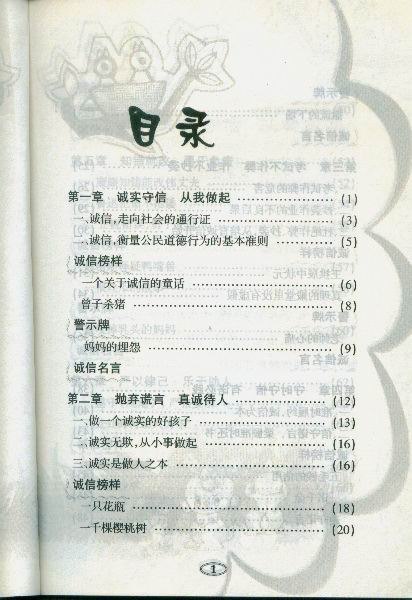 目录
第一章 诚实守信 从我做起 ……………… (1)
一、诚信,走向社会的通行证 ……………… (3)
二、诚信,衡量公民道德行为的基本准则 ……… (5)
诚信榜样
一个关于诚信的童话 ……………… (6)
曾子杀猪 ……………… (8)
警示牌
妈妈的埋怨 ……………… (9)
诚信名言
第二章 抛弃谎言 真诚待人 ……………… (12)
一、做一个诚实的好孩子 ……………… (13)
二、诚实无欺,从小事做起 ……………… (16)
三、诚实是做人之本 ……………… (16)
诚信榜样
一只花瓶 ……………… (18)
一千棵樱桃树 ……………… (20)
1